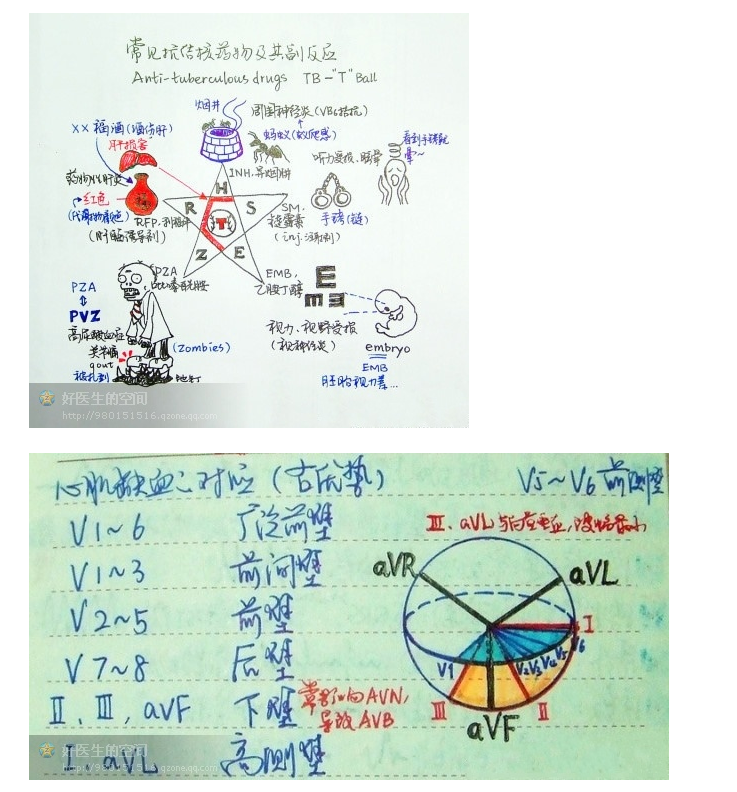 常见抗结核药物及其副反应
Anti-tuberculous drugs TB-"T" Ball
烟井
周围神经炎(VB6拮抗)
XX福酒(酒伤肝)
蚂蚁(蚁爬感)
看到手铐就
晕~
肝损害
听力受损、眩晕
药物性肝炎
INH,异烟肼
H
红色
R
S
SM,
链霉素
手铐(链)
(代谢物颜色)
RFP,利福平
T
(肝酶诱导剂)
(inj.注射剂)
Z
E
PZA
吡嗪酰胺
EMB,
乙胺丁醇
E
PZA
PVZ
高尿酸血症
类
gout
(Zombies)
视力、视野受损
(视神经炎)
embryo
EMB
胚胎视力差...
被扎到
地钉
好医生的空间
http://980151516.qzone.qq.com
心肌缺血:对应(古氏垫)
V5~V6 前侧壁
V1~6 广泛前壁
III、aVL与向量垂直,波幅最小
V1~3 前间壁
aVR
aVL
V2~5 前壁
I
V7~8 后壁
V1
V2
V3
V4
V5
V6
II、III、aVF 下壁
常影响AVN,
导致AVB
III
II
aVF
I、aVL 高侧壁
好医生的空间
http://980151516.qzone.qq.com